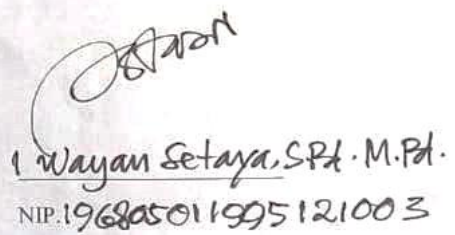 I Wayan Setaya, S.Pd. M.Pd.
NIP.196805011995121003